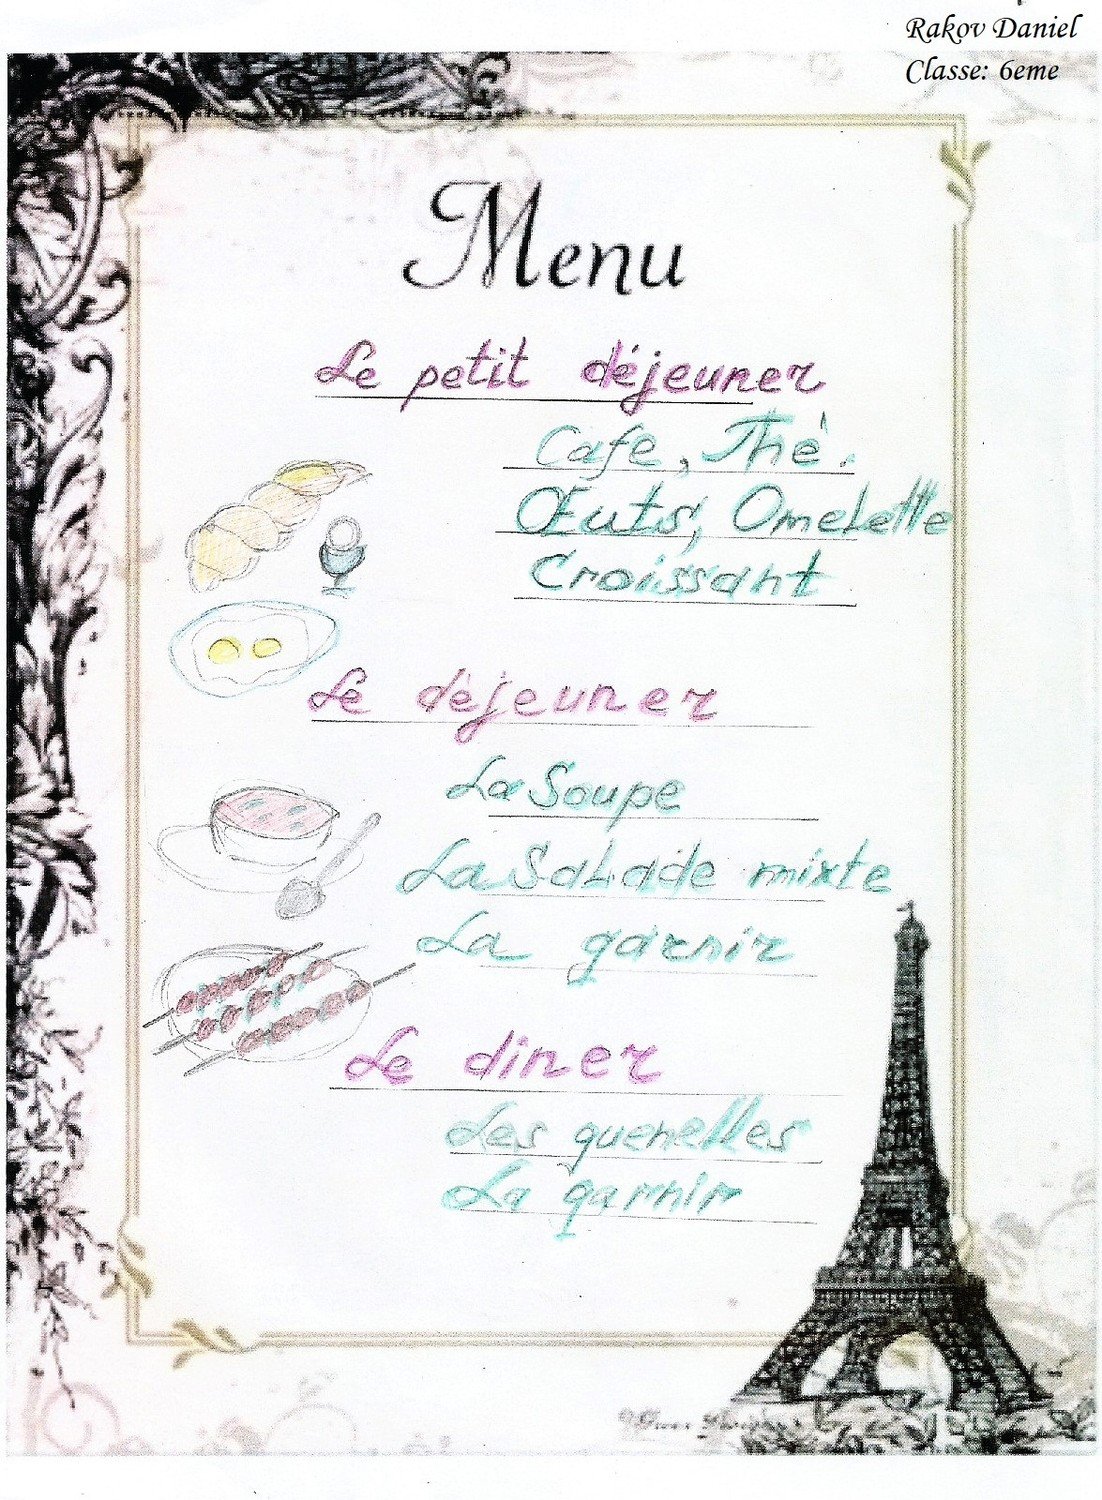 Rakov Daniel
Classe: 6eme
Menu
Le petit déjeuner
Cafe, Thé.
Œuts, Omelette
Croissant
Le déjeuner
La Soupe
La Salade mixte
La garnir
Le diner
Les quenelles
La garnir